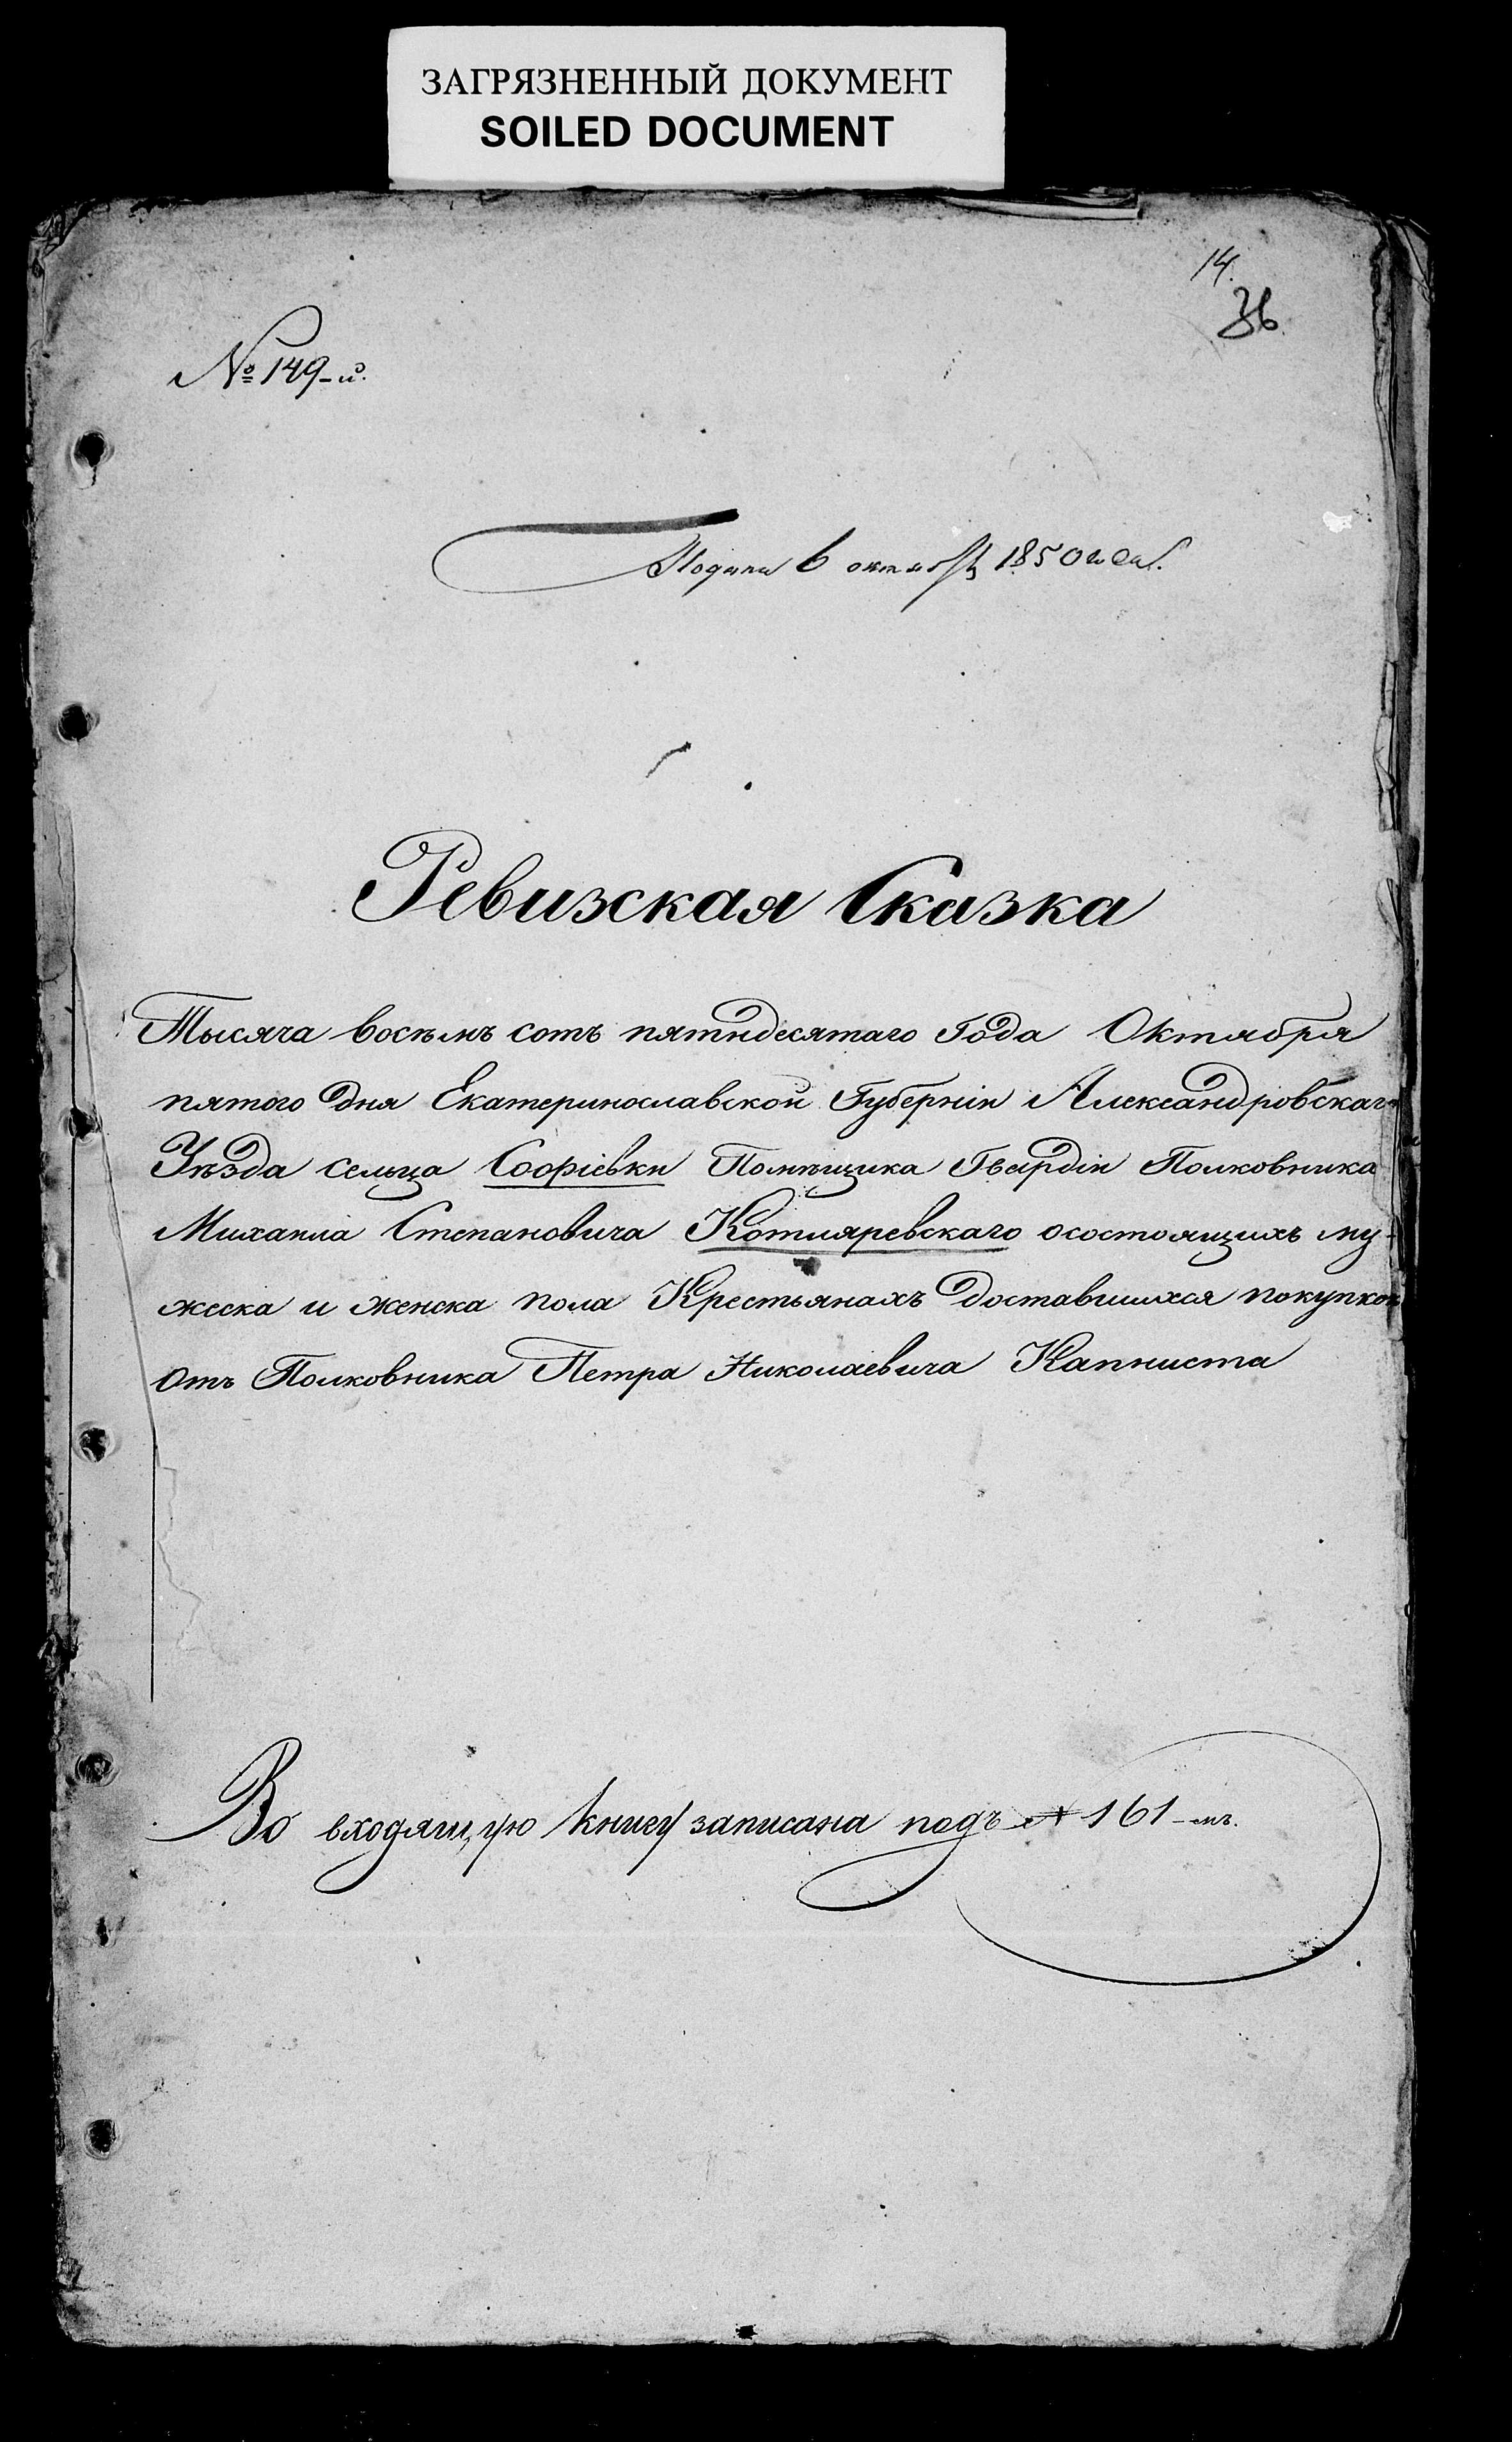 ЗАГРЯЗНЕННЫЙ ДОКУМЕНТ
SOILED DOCUMENT
14.
36.
№ 149-й.
6 октября 1850 года.
Ревизская Сказка
Тысяча восемь сотъ пятидесятаго Года Октября
пятого дня Екатеринославской Губерніи Александровскаго
Уѣзда сельца Софіевки Помѣщика Гвардіи Полковника
Михаила Степановича Котляревскаго осостоящихъ му-
жеска и женска пола Крестьянахъ доставшихся покупкою
отъ Полковника Петра Николаевича Капниста
Во входящую книгу записана подъ № 161-мъ.